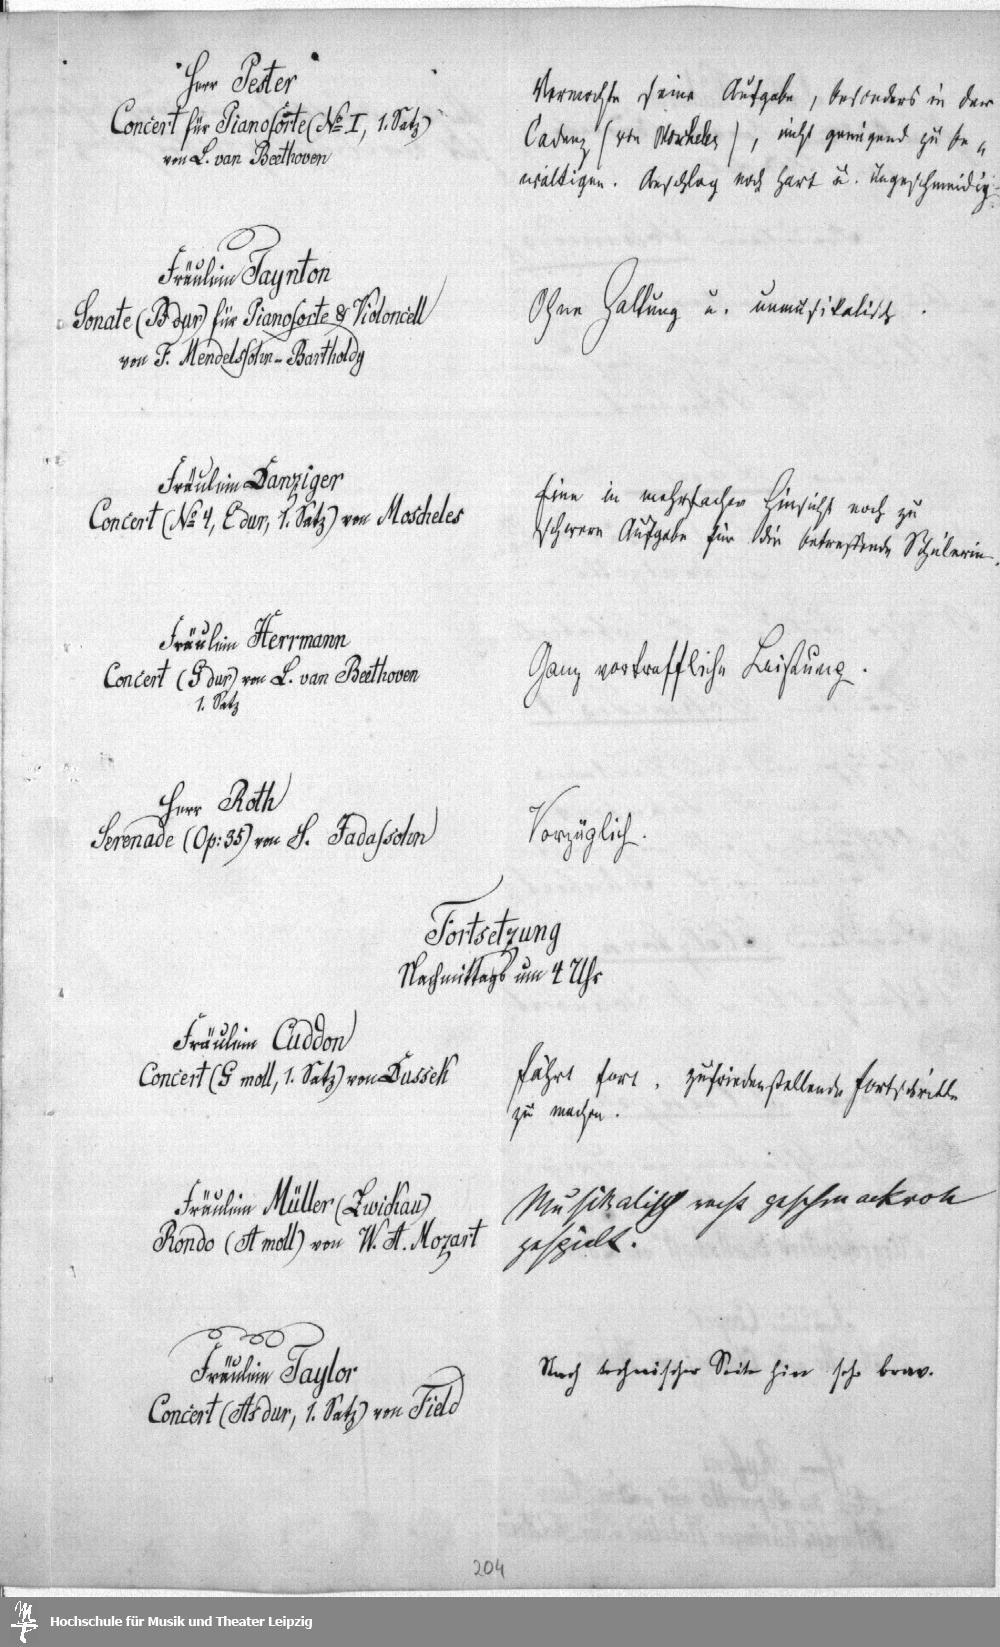 Herr Pester
Concert für Pianoforte (No I, 1. Satz)
von L. van Beethoven
Vermochte seine Aufgabe, besonders in der
Cadenz (von Moscheles), nicht genügend zu be„
wältigen. Anschlag noch hart u. ungeschmeidig.
Fräulein Taynton
Sonate (B dur) für Pianoforte & Violoncell
von F. Mendelssohn-Bartholdy
Ohne Haltung u. unmusikalisch.
Fräulein Danziger
Concert (No 4, E dur, 1. Satz) von Moscheles
Eine in mehrfacher Hinsicht noch zu
schwere Aufgabe für die betreffende Schülerin.
Fräulein Herrmann
Concert (G dur) von L. van Beethoven
1. Satz
Ganz vortreffliche Leistung.
Herr Roth
Serenade (Op: 35) von S. Jadassohn
Vorzüglich.
Fortsetzung
Nachmittags um 4 Uhr
Fräulein Cuddon
Concert (G moll, 1. Satz) von Dussek
Fährt fort, zufriedenstellende Fortschritte
zu machen.
Fräulein Müller (Zwickau)
Rondo (A moll) von W. A. Mozart
Musikalisch recht geschmackvoll
gespielt.
Fräulein Taylor
Concert (As dur, 1. Satz) von Field
Nach technischer Seite hin sehr brav.
204
Hochschule für Musik und Theater Leipzig